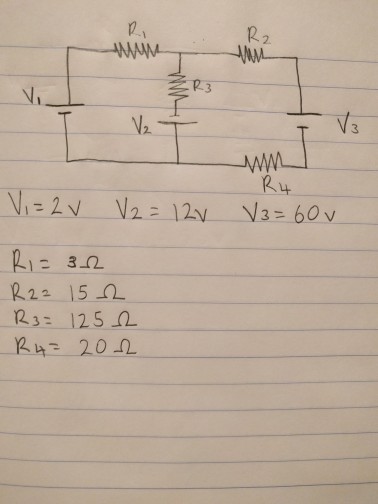 R1
R2
R3
V1
V2
V3
R4
V1 = 2v V2 = 12v V3 = 60v
R1 = 3Ω
R2 = 15 Ω
R3 = 125 Ω
R4 = 20 Ω